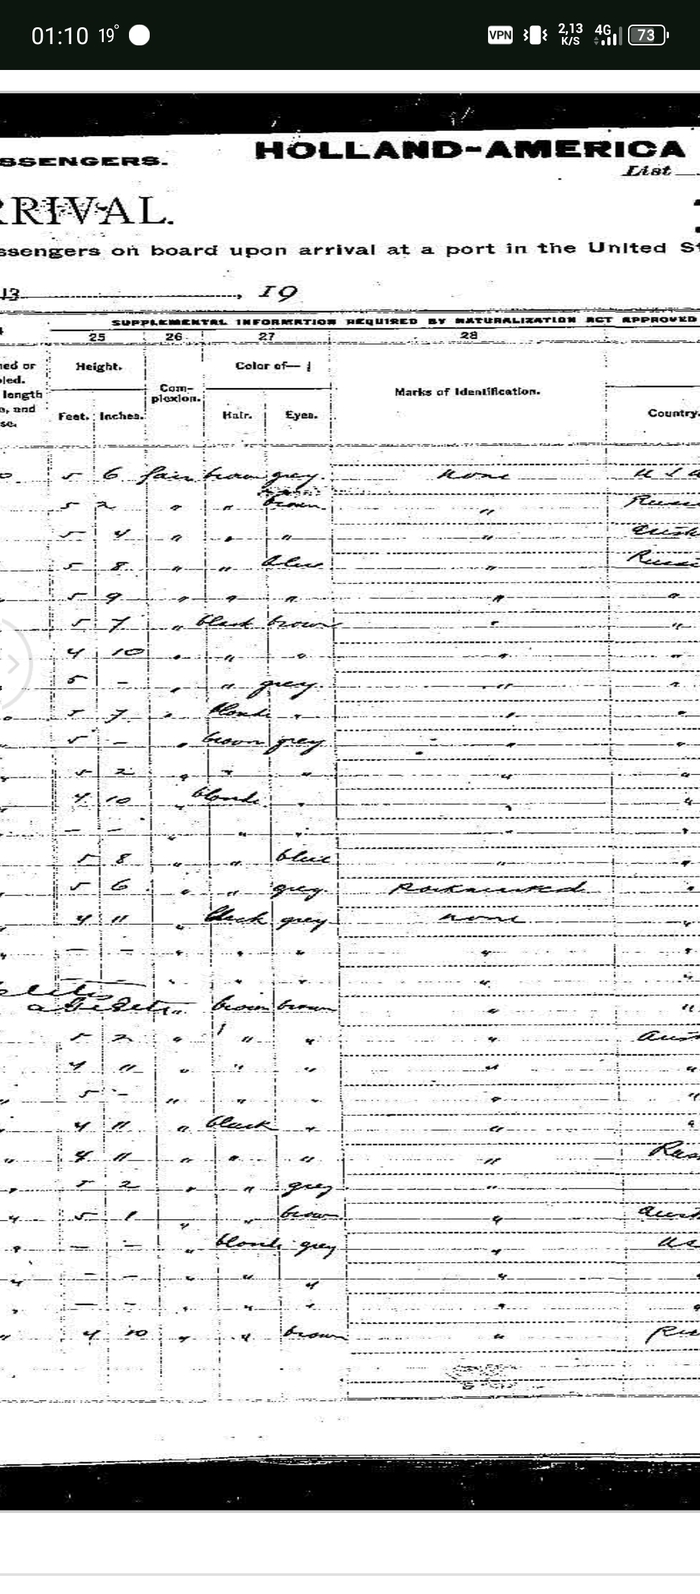 01:10 19° VPN 2,13 K/S 4G 73
SSENGERS. HOLLAND-AMERICA
List
RRIVAL.
ssengers on board upon arrival at a port in the United St
13 , 19
SUPPLEMENTAL INFORMATION REQUIRED BY NATURALIZATION ACT APPROVED
25 26 27 28
ned or
pled.
length
o, and
se.
Height. Com-
plexion. Color of— Marks of Identification.
Feet. Inches. Hair. Eyes. Country.
5 6 fair brown grey none U S A
5 2 " " brown " Russ
5 4 " " " "
5 8 " " blue " Russi
5 9 " " " " "
5 7 " black brown " "
4 10 " " " " "
5 - " " grey " "
5 7 " blonde " " "
5 - " brown grey " "
5 2 " " " " "
4 10 " blonde " " "
- - " " " " "
5 8 " " blue " "
5 6 " " grey pockmarked "
4 11 " black grey none "
- - " " " " "
" " " " "
" brown brown " "
5 2 " " " " Aust
4 11 " " " " "
5 - " " " " "
4 11 " black " " "
4 11 " " " " Rus
5 2 " " grey " "
5 1 " " brown " Aust
- - " blonde grey " US
- - " " " " "
- - " " " " "
4 10 " " brown " Rus